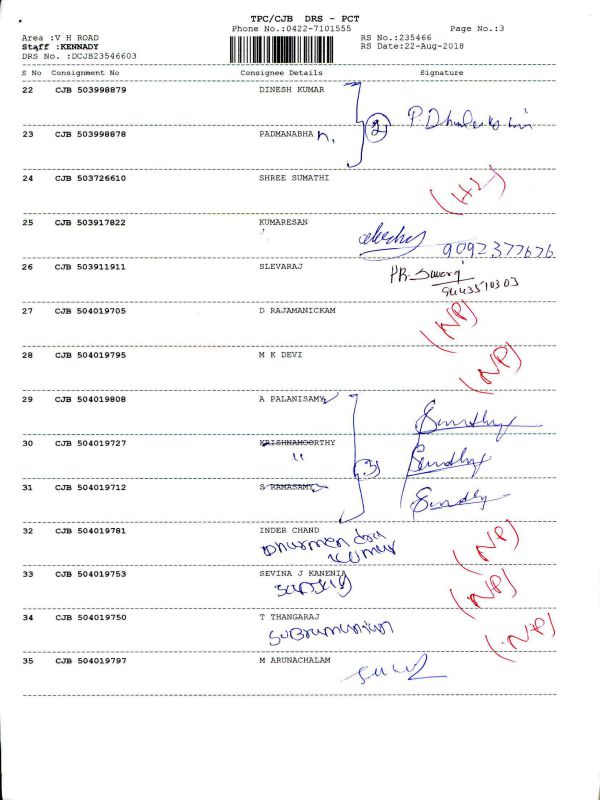 TPC/CJB DRS - PCT
Phone No.:0422-7101555 Page No.:3
Area :V H ROAD RS No.:235466
Staff :KENNADY RS Date:22-Aug-2018
DRS No. :DCJB23546603
S No Consignment No Consignee Details Signature
22 CJB 503998879 DINESH KUMAR
(2)
23 CJB 503998878 PADMANABHA n,
24 CJB 503726610 SHREE SUMATHI
25 CJB 503917822 KUMARESAN
9092377676
26 CJB 503911911 SLEVARAJ
27 CJB 504019705 D RAJAMANICKAM (NP)
28 CJB 504019795 M K DEVI (NP)
29 CJB 504019808 A PALANISAMY
30 CJB 504019727 KRISHNAMOORTHY
" (3)
31 CJB 504019712 S RAMASAMY
32 CJB 504019781 INDER CHAND (NP)
33 CJB 504019753 SEVINA J KANENIA (NP)
34 CJB 504019750 T THANGARAJ (NP)
35 CJB 504019797 M ARUNACHALAM